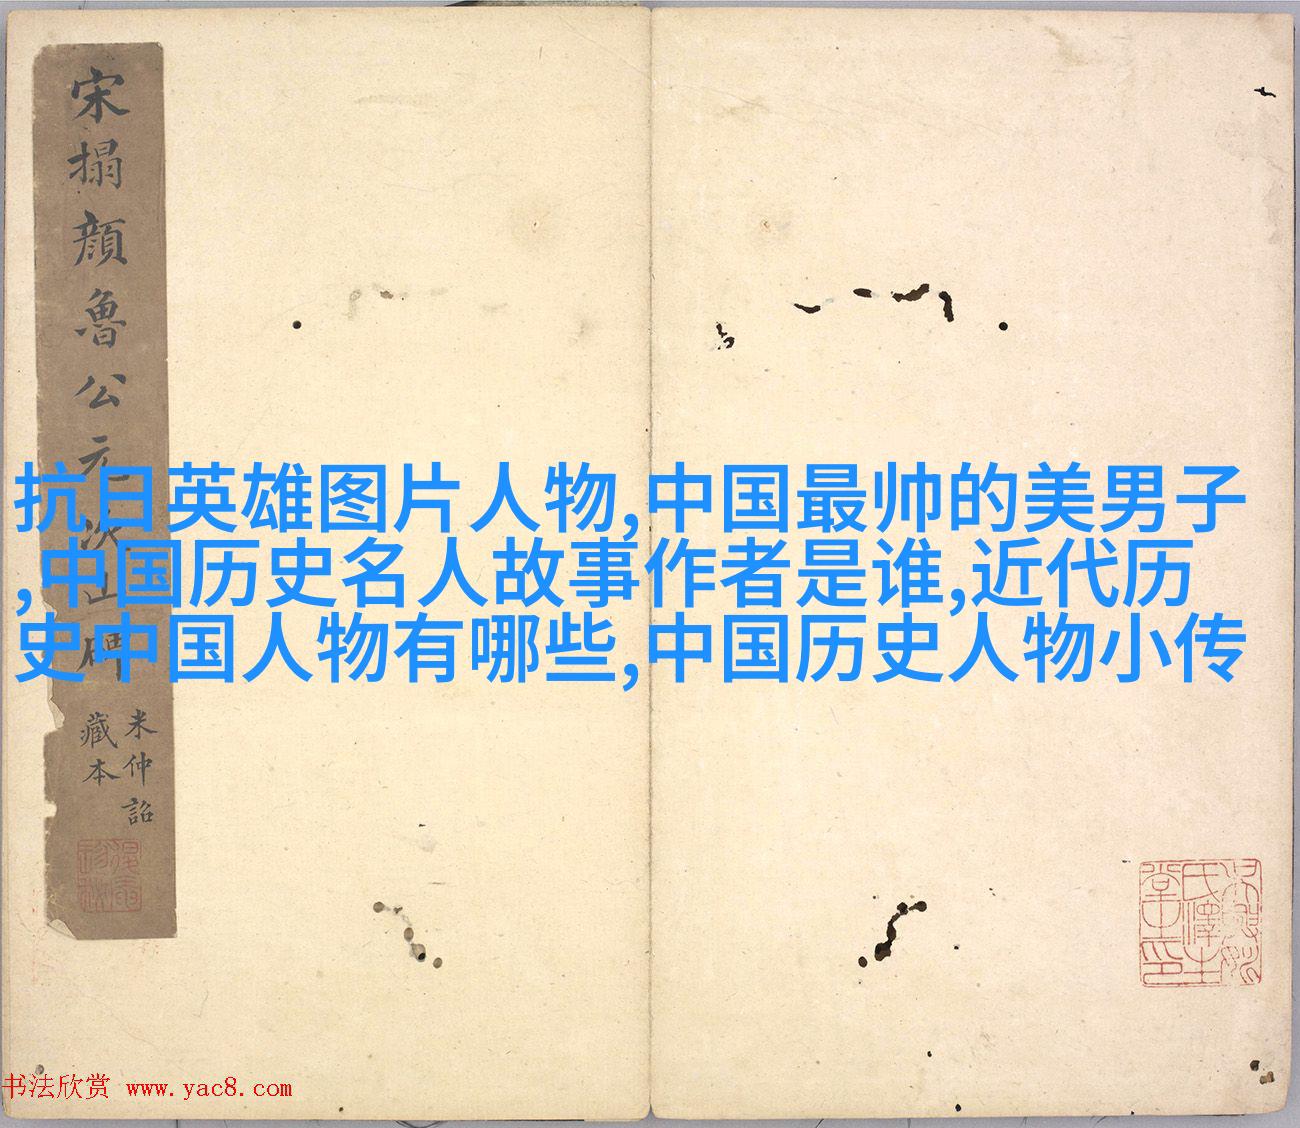 宋搨顔魯公元次山碑
米仲詔
藏本
抗日英雄图片人物,中国最帅的美男子
,中国历史名人故事作者是谁,近代历
史中国人物有哪些,中国历史人物小传
书法欣赏 www.yac8.com